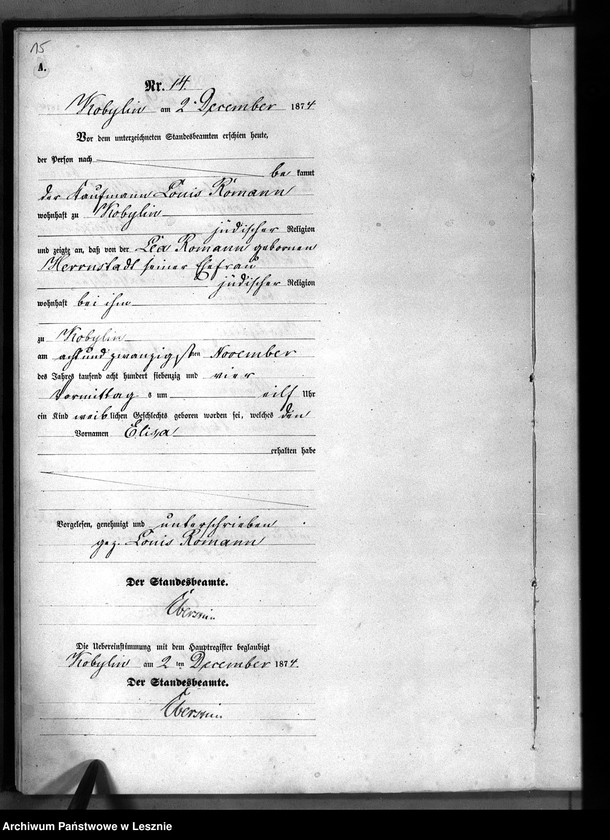 15
A.
Nr. 14.
Kobylin am 2. December 1874
Vor dem unterzeichneten Standesbeamten erschien heute,
der Person nach be kannt
der Kaufmann Louis Romann
wohnhaft zu Kobylin
jüdischer Religion
und zeigte an, daß von der Lea Romann gebornen
Herrnstadt seiner Ehefrau
jüdischer Religion
wohnhaft bei ihm
zu Kobylin
am acht und zwanzigsten November
des Jahres tausend acht hundert siebenzig und vier
Vormittag s um eilf Uhr
ein Kind weiblichen Geschlechts geboren worden sei, welches den
Vornamen Elisa
erhalten habe
Vorgelesen, genehmigt und unterschrieben
gez. Louis Romann
Der Standesbeamte.
Die Uebereinstimmung mit dem Hauptregister beglaubigt
Kobylin am 2 ten December 1874.
Der Standesbeamte.
Archiwum Państwowe w Lesznie